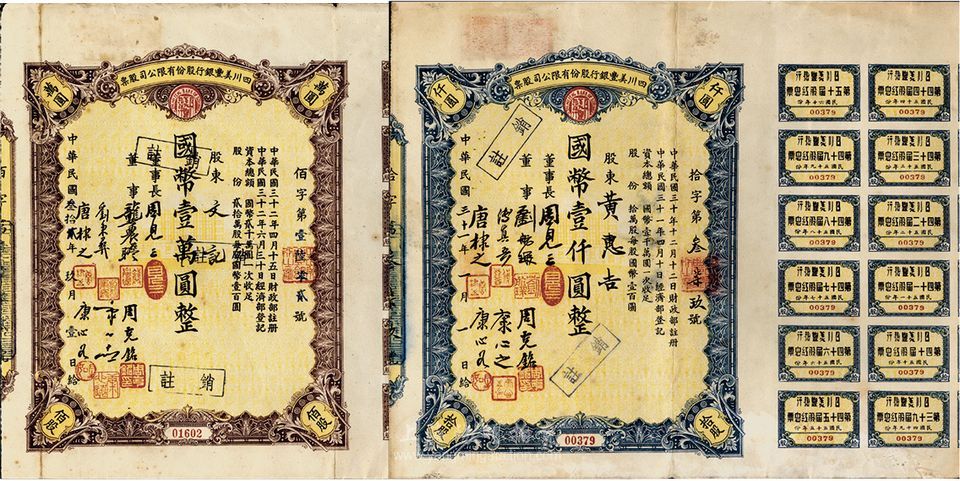 四川美豐銀行股份有限公司股票
萬圓
萬圓
佰字第壹陸零貳號
中華民國三十二年四月十五日財政部註冊
中華民國三十二年六月三十日經濟部登記
資本總額 國幣貳千萬圓一次收足
股份 貳拾萬股每股國幣壹百圓
股東 文記
國幣壹萬圓整
董事長 周見三
董事
周克銘
唐棣之
康心之
中華民國叁拾貳年玖月壹日給
註銷
註銷
佰股
佰股
01602
四川美豐銀行股份有限公司股票
仟圓
仟圓
拾字第叁柒玖號
中華民國三十年十二月十二日財政部註冊
中華民國三十一年四月十日經濟部登記
資本總額 國幣壹千萬圓一次收足
股份 拾萬股每股國幣壹百圓
股東 黃惠吉
國幣壹仟圓整
董事長 周見三
董事
周克銘
唐棣之
康心之
中華民國三十二年一月一日給
註銷
註銷
拾股
拾股
00379
四川美豐銀行
第四十四屆股紅息票
民國五十四年份
00379
四川美豐銀行
第五十屆股紅息票
民國六十年份
00379
四川美豐銀行
第四十三屆股紅息票
民國五十三年份
00379
四川美豐銀行
第四十九屆股紅息票
民國五十九年份
00379
四川美豐銀行
第四十二屆股紅息票
民國五十二年份
00379
四川美豐銀行
第四十八屆股紅息票
民國五十八年份
00379
四川美豐銀行
第四十一屆股紅息票
民國五十一年份
00379
四川美豐銀行
第四十七屆股紅息票
民國五十七年份
00379
四川美豐銀行
第四十屆股紅息票
民國五十年份
00379
四川美豐銀行
第四十六屆股紅息票
民國五十六年份
00379
四川美豐銀行
第三十九屆股紅息票
民國四十九年份
00379
四川美豐銀行
第四十五屆股紅息票
民國五十五年份
00379